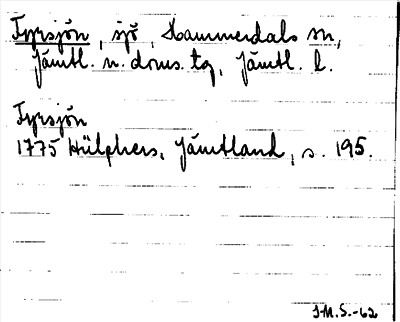 Fyrsjön, sjö, Hammerdals sn,
Jämtl. n. doms. tg, Jämtl. l.
Fyrsjön
1775 Hülphers, Jämtland, s. 195.
I.M.S.-62